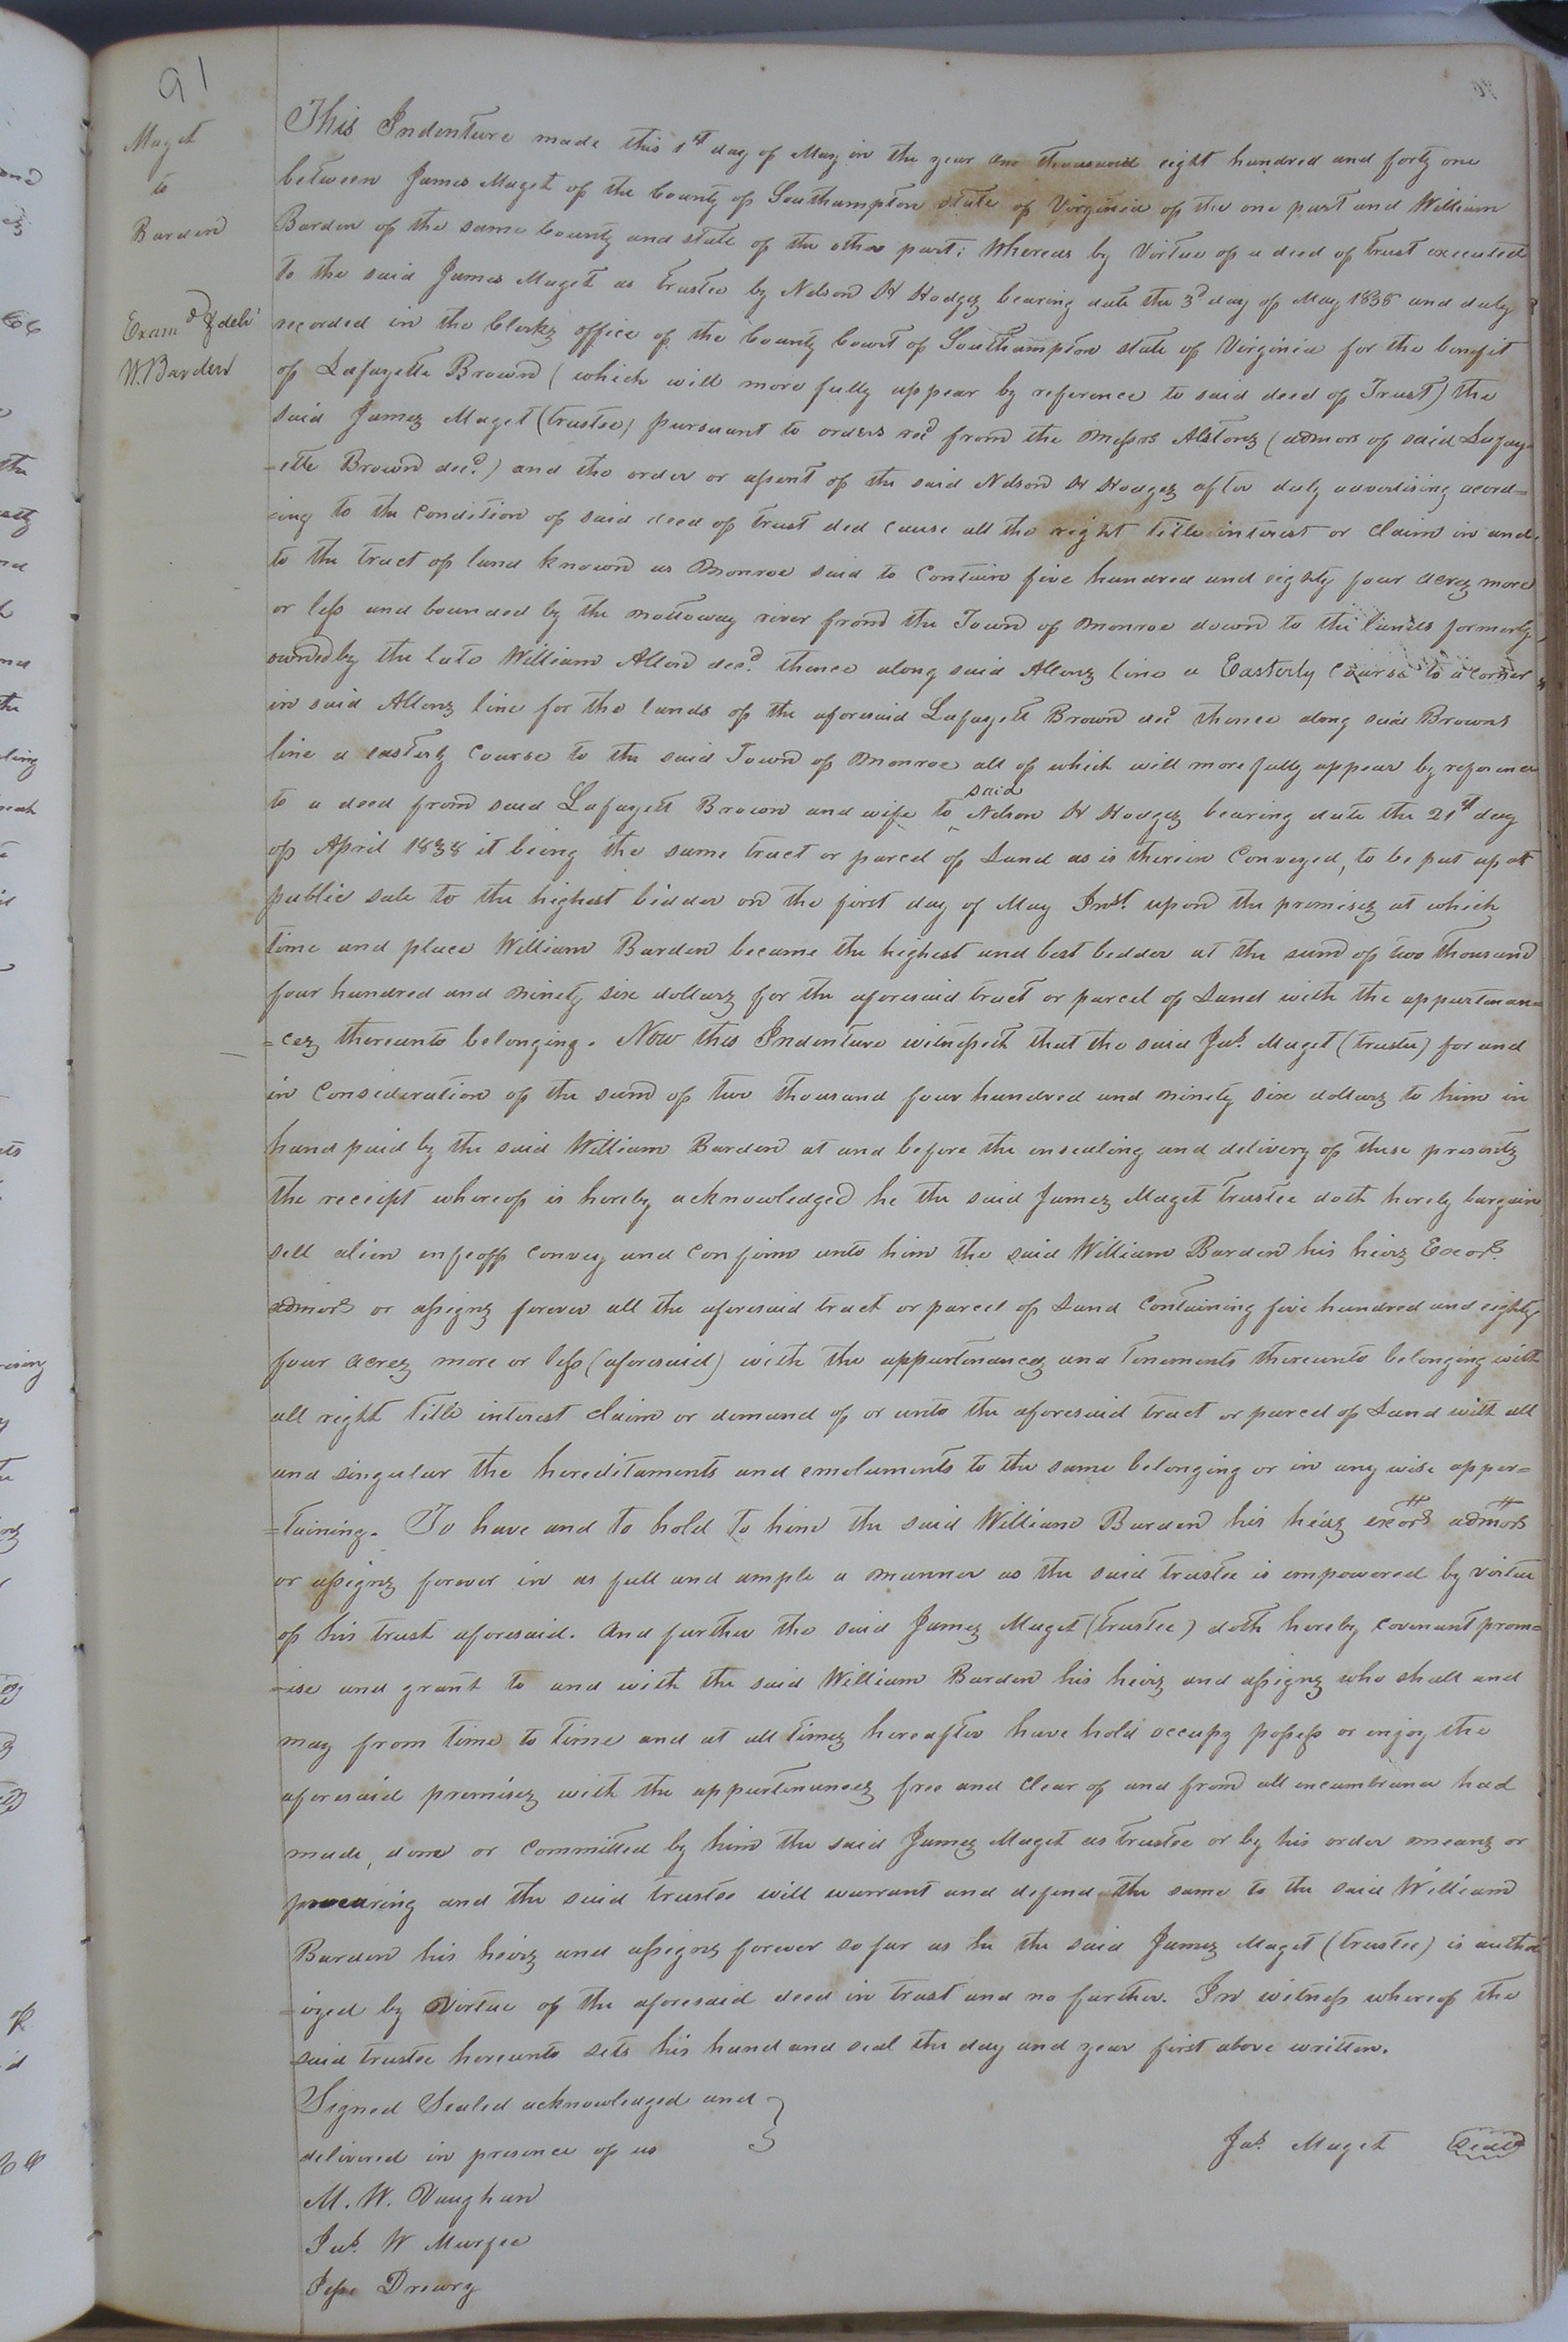 91
Maget
to
Barden
Exam.d & deld
W. Barden
This Indenture made this 1st day of May in the year one thousand eight hundred and forty one
between James Maget of the County of Southampton state of Virginia of the one part and William
Barden of the same County and state of the other part: Whereas by Virtue of a deed of trust executed
to the said James Maget as trustee by Nelson H Hodges bearing date the 3d day of May 1838 and duly
recorded in the Clerks office of the County Court of Southampton state of Virginia for the benefit
of Lafayette Brown (which will more fully appear by reference to said deed of Trust) the
said James Maget (trustee) pursuant to orders recd from the Messrs Alstons (admors of said Lafay-
-ette Brown decd.) and the order or assent of the said Nelson H Hodges after duly advertising acord=
=ing to the Condition of said deed of trust ded cause all the right title interest or Claim in and
to the tract of land known as Monroe said to Contain five hundred and eighty four acres more
or less and bounded by the Nottoway river from the Town of Monroe down to the lands formerly
owned by the late William Allen decd. thence along said Allens line a Easterly Course to a corner
in said Allens line for the lands of the aforesaid Lafayett Brown decd thence along said Browns
line a easterly Course to the said Town of Monroe all of which will more fully appear by reference
to a deed from said Lafayett Brown and wife to said Nelson H Hodges bearing date the 21st day
of April 1838 it being the same tract or parcel of Land as is therein Conveyed, to be put up at
public sale to the highest bidder on the first day of May Inst. upon the premises at which
time and place William Barden became the highest and best bedder at the sum of two thousand
four hundred and ninety six dollars for the aforesaid tract or parcel of Land with the appurtenan=
=ces thereunto belonging. Now this Indenture witnesseth that the said Jas. Maget (trustee) for and
in Consideration of the sum of two thousand four hundred and ninety six dollars to him in
hand paid by the said William Barden at and before the ensealing and delivery of these presents
the receipt whereof is hereby acknowledged he the said James Maget Trustee doth hereby bargain
sell alien enfeoff Convey and Confirm unto him the said William Barden his heirs Exors.
admors or assigns forever all the aforesaid tract or parcel of Land Containing five hundred and eighty
four acres more or less (aforesaid) with the appurtenances and Tenements thereunto belonging with
all right title interest claim or demand of or unto the aforesaid tract or parcel of Land with all
and singular the hereditaments and emoluments to the same belonging or in any wise apper=
=taining. To have and to hold to him the said William Barden his heirs exors admors
or assigns forever in as full and ample a manner as the said trustee is empowered by virtue
of his trust aforesaid. And further the said James Maget (trustee) doth hereby covenant prom=
=ise and grant to and with the said William Barden his heirs and assigns who shall and
may from time to time and at all times hereafter have hold occupy possess or enjoy the
aforesaid premises with the appurtenances free and Clear of and from all encumbrance had
made, done or Committed by him the said James Maget as trustee or by his order means or
procuring and the said trustee will warrant and defend the same to the said William
Barden his heirs and assigns forever so far as he the said James Maget (trustee) is author
=ized by Virtue of the aforesaid deed in trust and no further. In witness whereof the
said trustee hereunto sets his hand and seal the day and year first above written.
Signed Sealed acknowledged and
delivered in presence of us
Jas. Maget Seal
M. W. Vaughan
Jas. W Murfee
Jesse Drewry